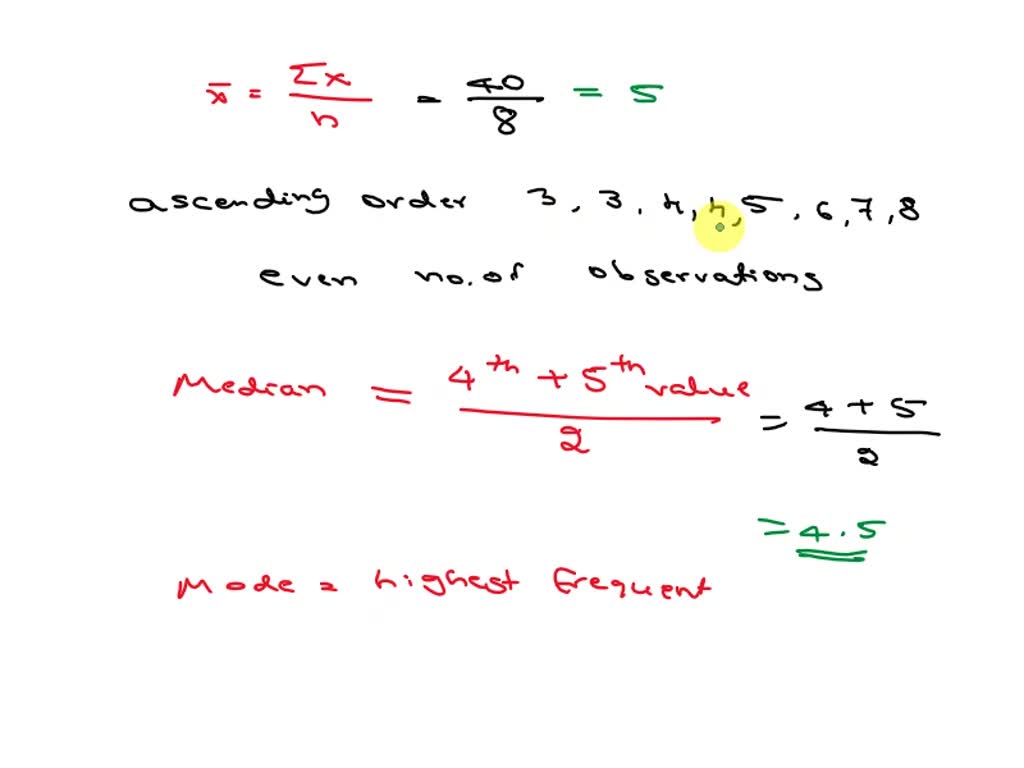 x̄ = Σx / n = 40 / 8 = 5
ascending order 3, 3, 4, 4, 5, 6, 7, 8
even no. of observations
Median = 4th + 5th value / 2 = 4 + 5 / 2
= 4.5
Mode = highest frequent